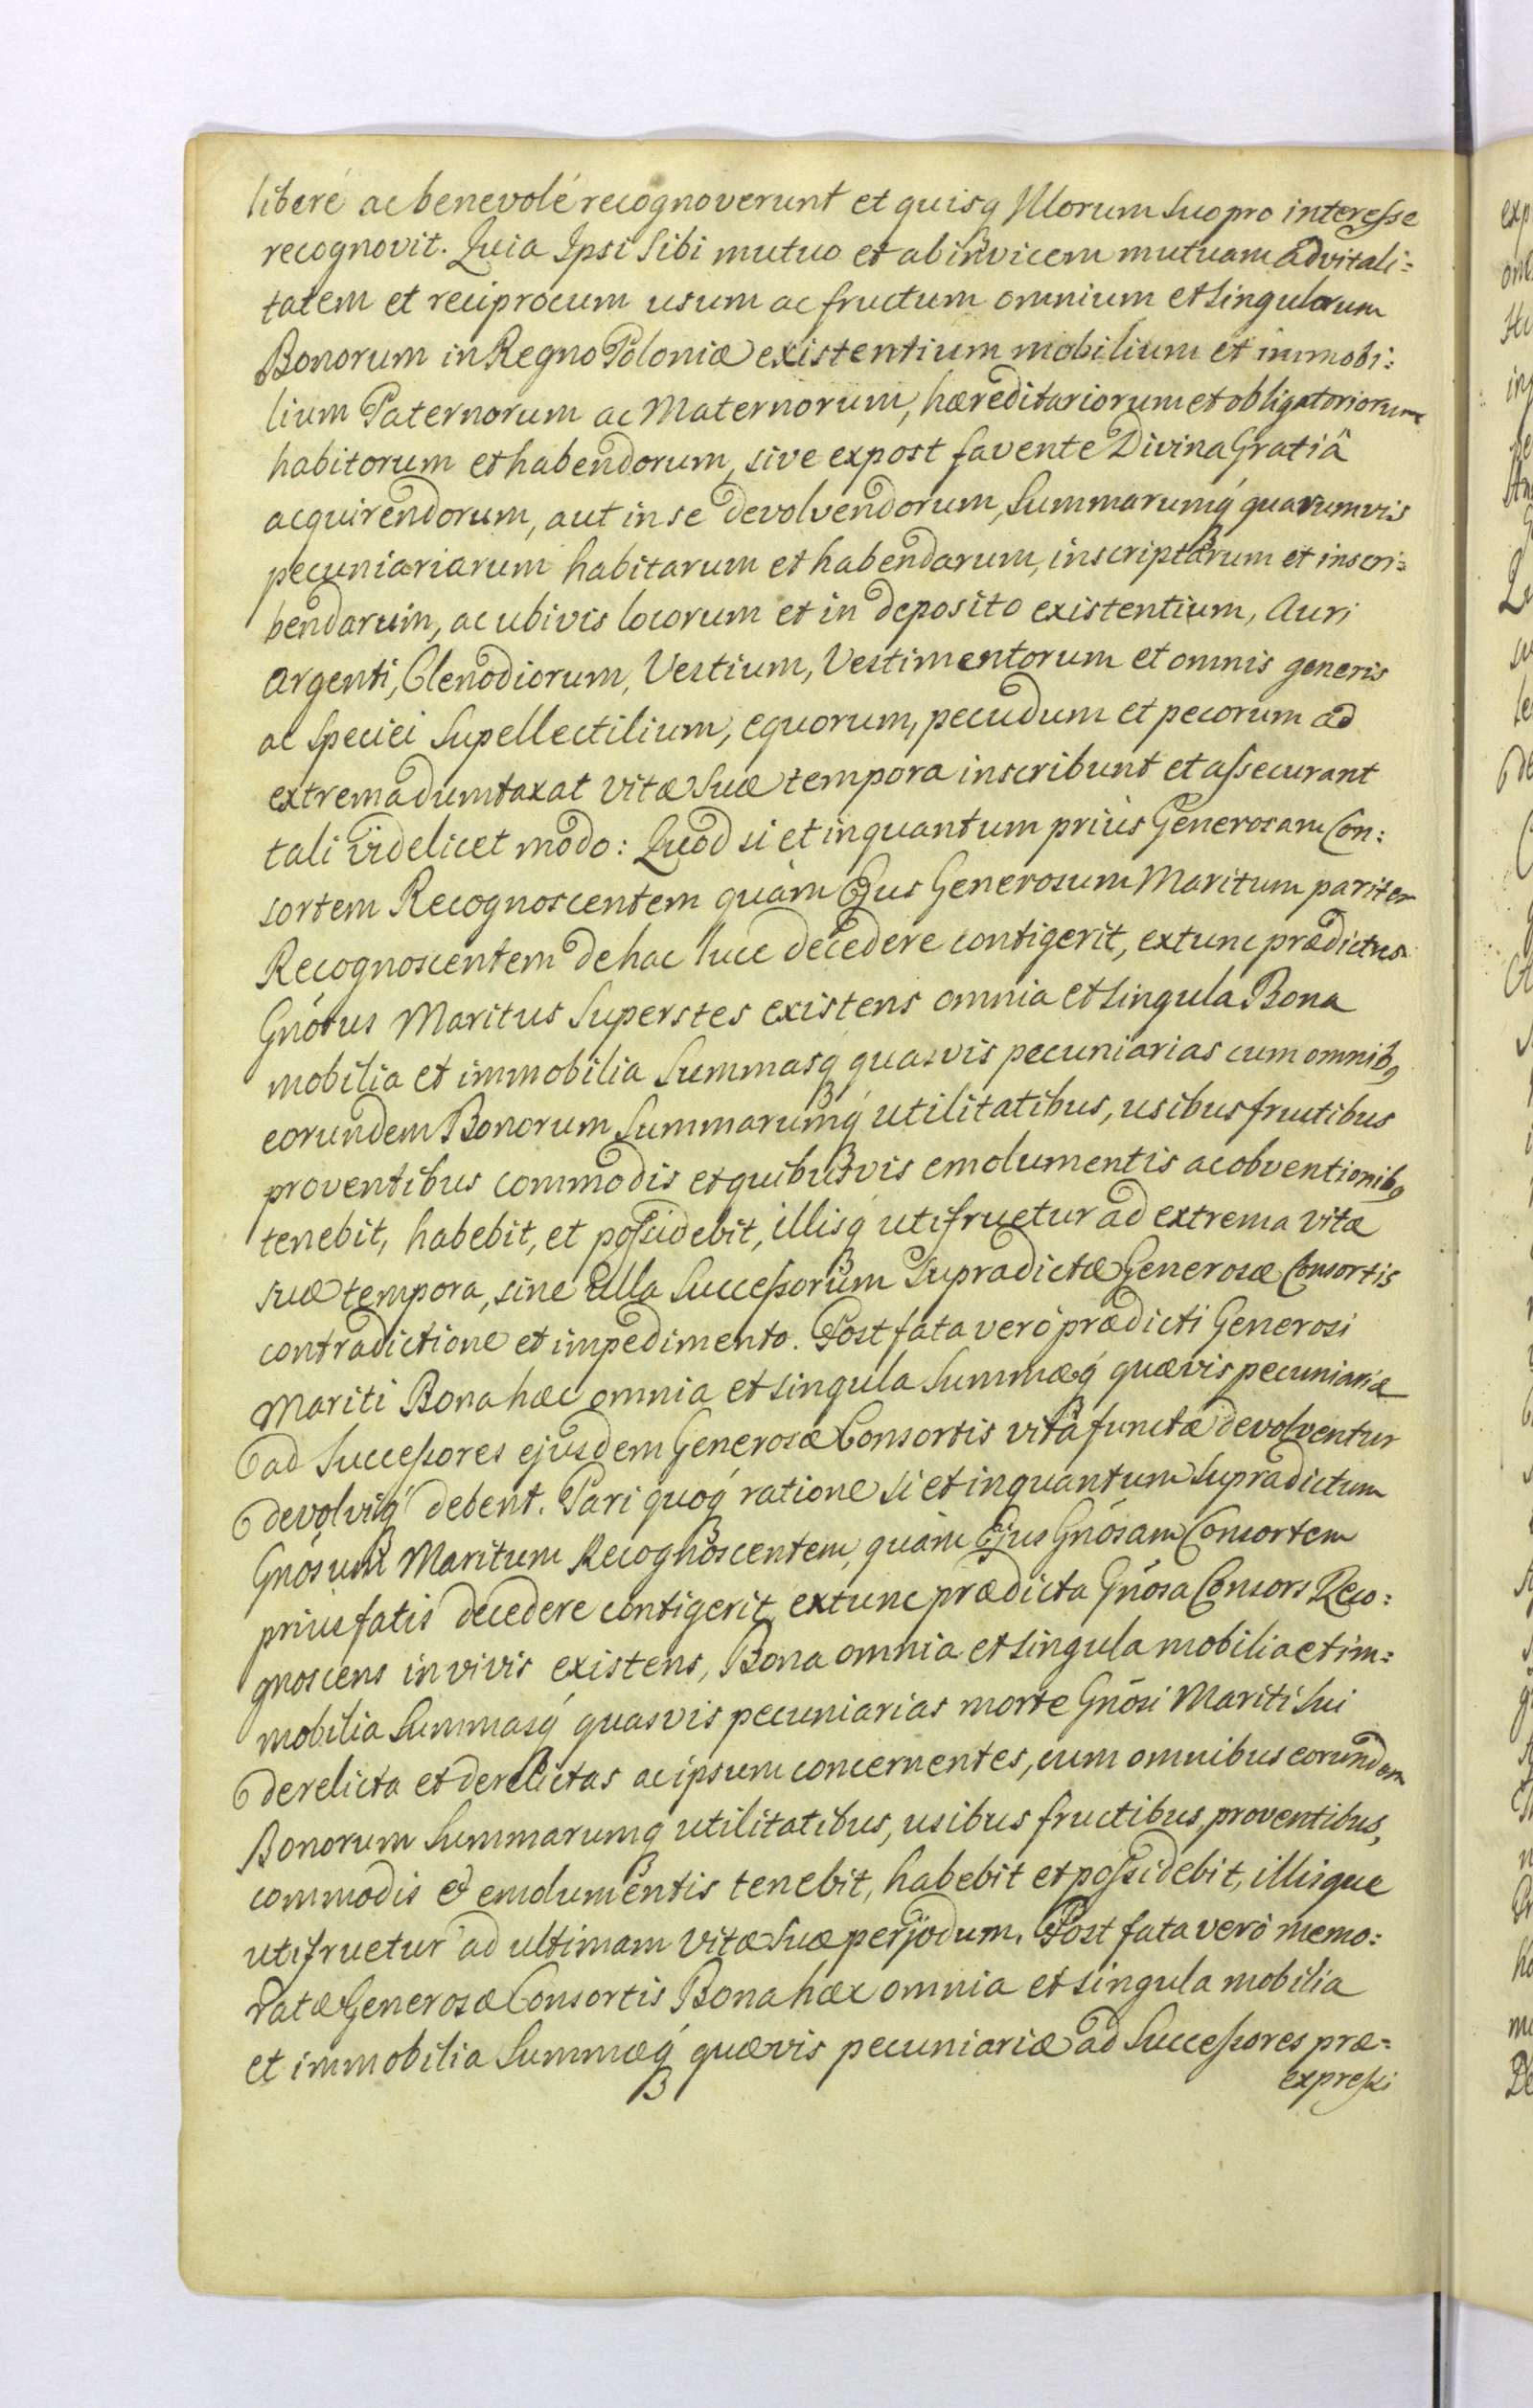 liberé ac benevolé recognoverunt et quisq Illorum suo pro interesse
recognovit. Quia Ipsi sibi mutuo et ab invicem mutuam advitali=
tatem et reciprocum usum ac fructum omnium et singulorum
Bonorum in Regno Poloniæ existentium mobilium et immobi=
lium Paternorum ac Maternorum, hæreditariorum et obligatoriorum
habitorum et habendorum, sive expost favente Divina Gratiâ
acquirendorum, aut in se devolvendorum, summarumq́ quarumvis
pecuniariarum habitarum et habendarum, inscriptarum et inscri=
bendarum, ac ubivis locorum et in deposito existentium, Auri
Argenti, Clenodiorum, Vestium, Vestimentorum et omnis generis
ac speciei supellectilium, equorum, pecudum et pecorum ad
extrema dumtaxat vitæ suæ tempora inscribunt et assecurant
tali videlicet modo: Quod si et inquantum prius Generosam Con=
sortem Recognoscentem quàm Ejus Generosum Maritum pariter
Recognoscentem de hac luce decedere contigerit, extunc prædictus
Gnósus Maritus superstes existens omnia et singula Bona
mobilia et immobilia summasq́ quasvis pecuniarias cum omnibꝰ
eorundem Bonorum summarumq́ utilitatibus, usibus fructibus
proventibus commodis et quibusvis emolumentis ac obventionibꝰ
tenebit, habebit, et possidebit, illisq́ utifruetur ad extrema vitæ
suæ tempora, sine ulla successorum supradictæ Generosæ Consortis
contradictione et impedimento. Post fata verò prædicti Generosi
Mariti Bona hæc omnia et singula summæq́ quævis pecuniariæ
ad successores ejusdem Generosæ Consortis vitâ functæ devolventur
devolviq́ debent. Pari quoq́ ratione si et inquantum supradictum
Gnósum Maritum Recognoscentem, quàm Ejus Gnósam Consortem
prius fatis decedere contigerit, extunc prædicta Gnósa Consors Reco=
gnoscens in vivis existens, Bona omnia et singula mobilia et im=
mobilia summasq́ quasvis pecuniarias morte Gnósi Mariti sui
derelicta et derelictas ac ipsum concernentes, cum omnibus eorundem
Bonorum summarumq utilitatibus, usibus fructibus, proventibus,
commodis & emolumentis tenebit, habebit et possidebit, illisque
utifruetur ad ultimam vitæ suæ perjodum. Post fata verò memo=
ratæ Generosæ Consortis Bona hæc omnia et singula mobilia
et immobilia summæq́ quævis pecuniariæ ad successores præ=
expressi